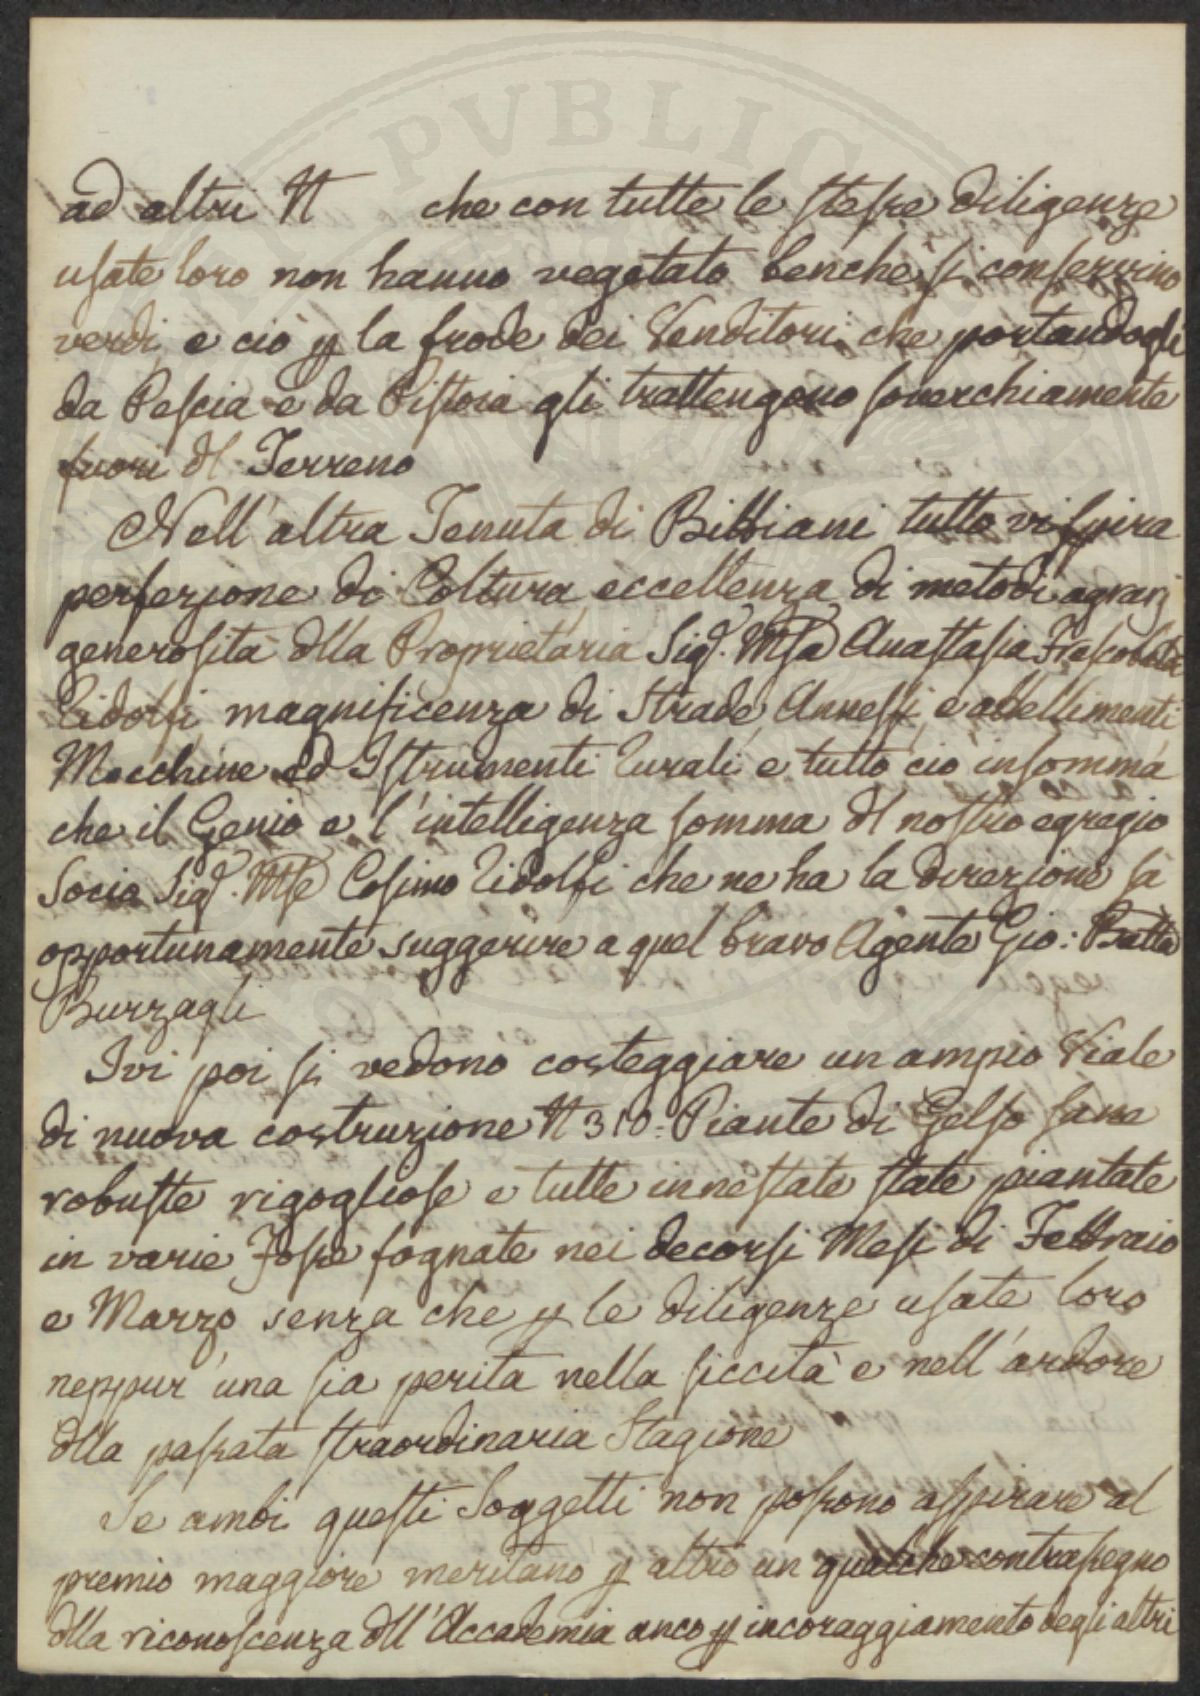 ad altri N che con tutte le stesse diligenze
usate loro non hanno vegetato benchè si conservino
verdi, e ciò p la frode dei Venditori che portandogli
da Pescia e da Pistoia gli trattengono soverchiamente
fuori dl Terreno
Nell'altra Tenuta di Bibbiani tutto vi spira
perfezione di Coltura, eccellenza di metodi agrarj
generosità dlla Proprietaria Sigª. Mssa Anastasia Frescobaldi
Ridolfi, magnificenza di Strade, Annessi, e abbellimenti
Macchine ed Istrumenti rurali, e tutto ciò insomma
che il Genio e l'intelligenza somma dl nostro egregio
Socio Sigr. Mse Cosimo Ridolfi che ne ha la direzione sà
opportunamente suggerire a quel bravo Agente Gio: Batta
Burzagli
Ivi poi si vedono costeggiare un ampio Viale
di nuova costruzione N 310. Piante di Gelso sane
robuste rigogliose e tutte innestate state piantate
in varie Fosse fognate nei decorsi Mesi di Febbraio
e Marzo senza che p le diligenze usate loro
neppur' una sia perita nella siccità e nell'ardore
dlla passata straordinaria Stagione
Se ambi questi Soggetti non possono aspirare al
premio maggiore meritano p altro un qualche contrassegno
dlla riconoscenza dll'Accademia anco p incoraggiamento degli altri
PVBLIC